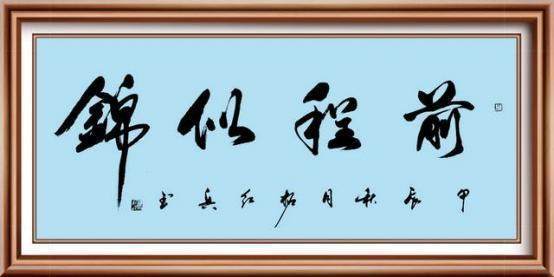 前程似錦
甲辰秋月红兵书